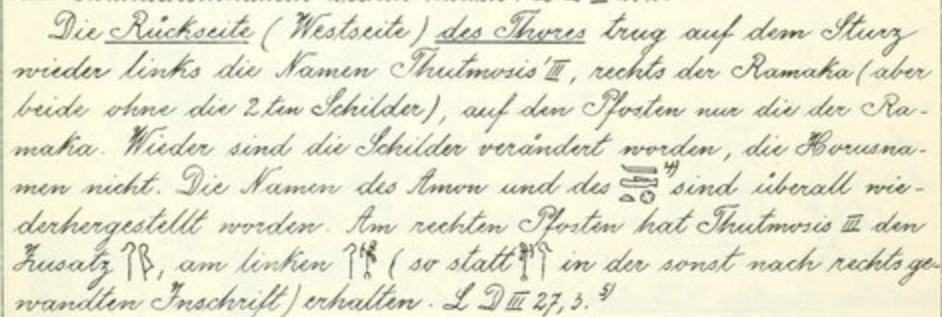 Die Rückseite (Westseite) des Thores trug auf dem Sturz
wieder links die Namen Thutmosis' III, rechts der Ramaka (aber
beide ohne die 2ten Schilder), auf den Pfosten nur die der Ra-
maka. Wieder sind die Schilder verändert worden, die Horusna-
men nicht. Die Namen des Amon und des 4) sind überall wie-
derhergestellt worden. Am rechten Pfosten hat Thutmosis III den
Zusatz , am linken ( so statt in der sonst nach rechts ge-
wandten Inschrift) erhalten. L D III 27, 3. 5)